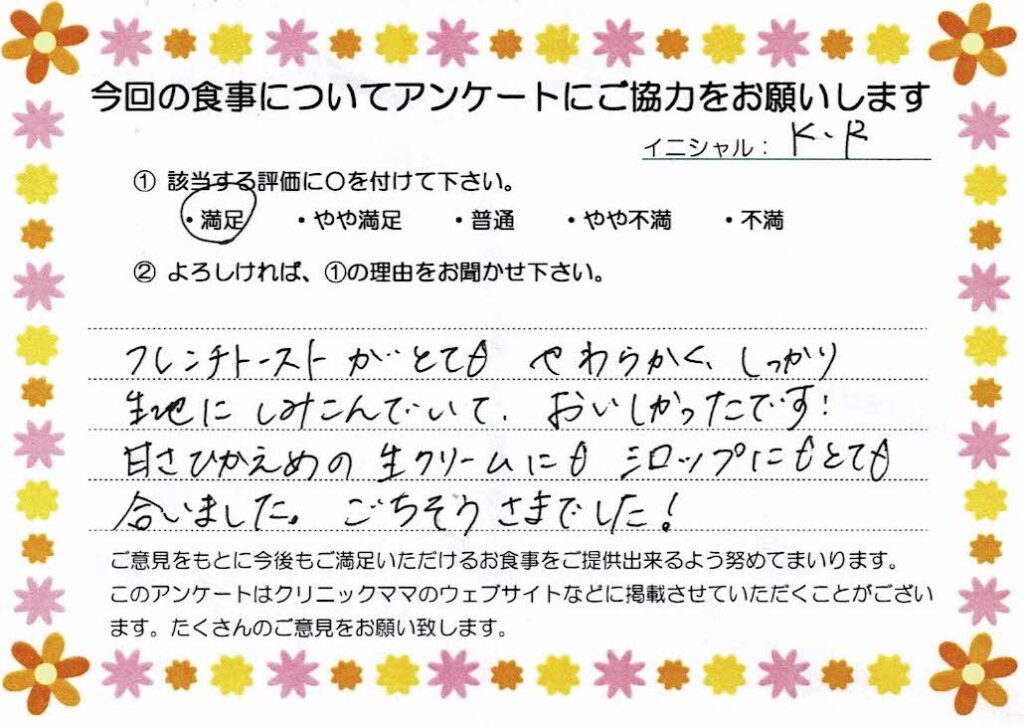 今回の食事についてアンケートにご協力をお願いします
イニシャル： K.R
① 該当する評価に○を付けて下さい。
・満足 ・やや満足 ・普通 ・やや不満 ・不満
② よろしければ、①の理由をお聞かせ下さい。
フレンチトーストがとても やわらかく、しっかり
生地に しみこんでいて、おいしかったです！
甘さひかえめの 生クリームにも シロップにもとても
合いました。ごちそうさまでした！
ご意見をもとに今後もご満足いただけるお食事をご提供出来るよう努めてまいります。
このアンケートはクリニックママのウェブサイトなどに掲載させていただくことがござい
ます。たくさんのご意見をお願い致します。